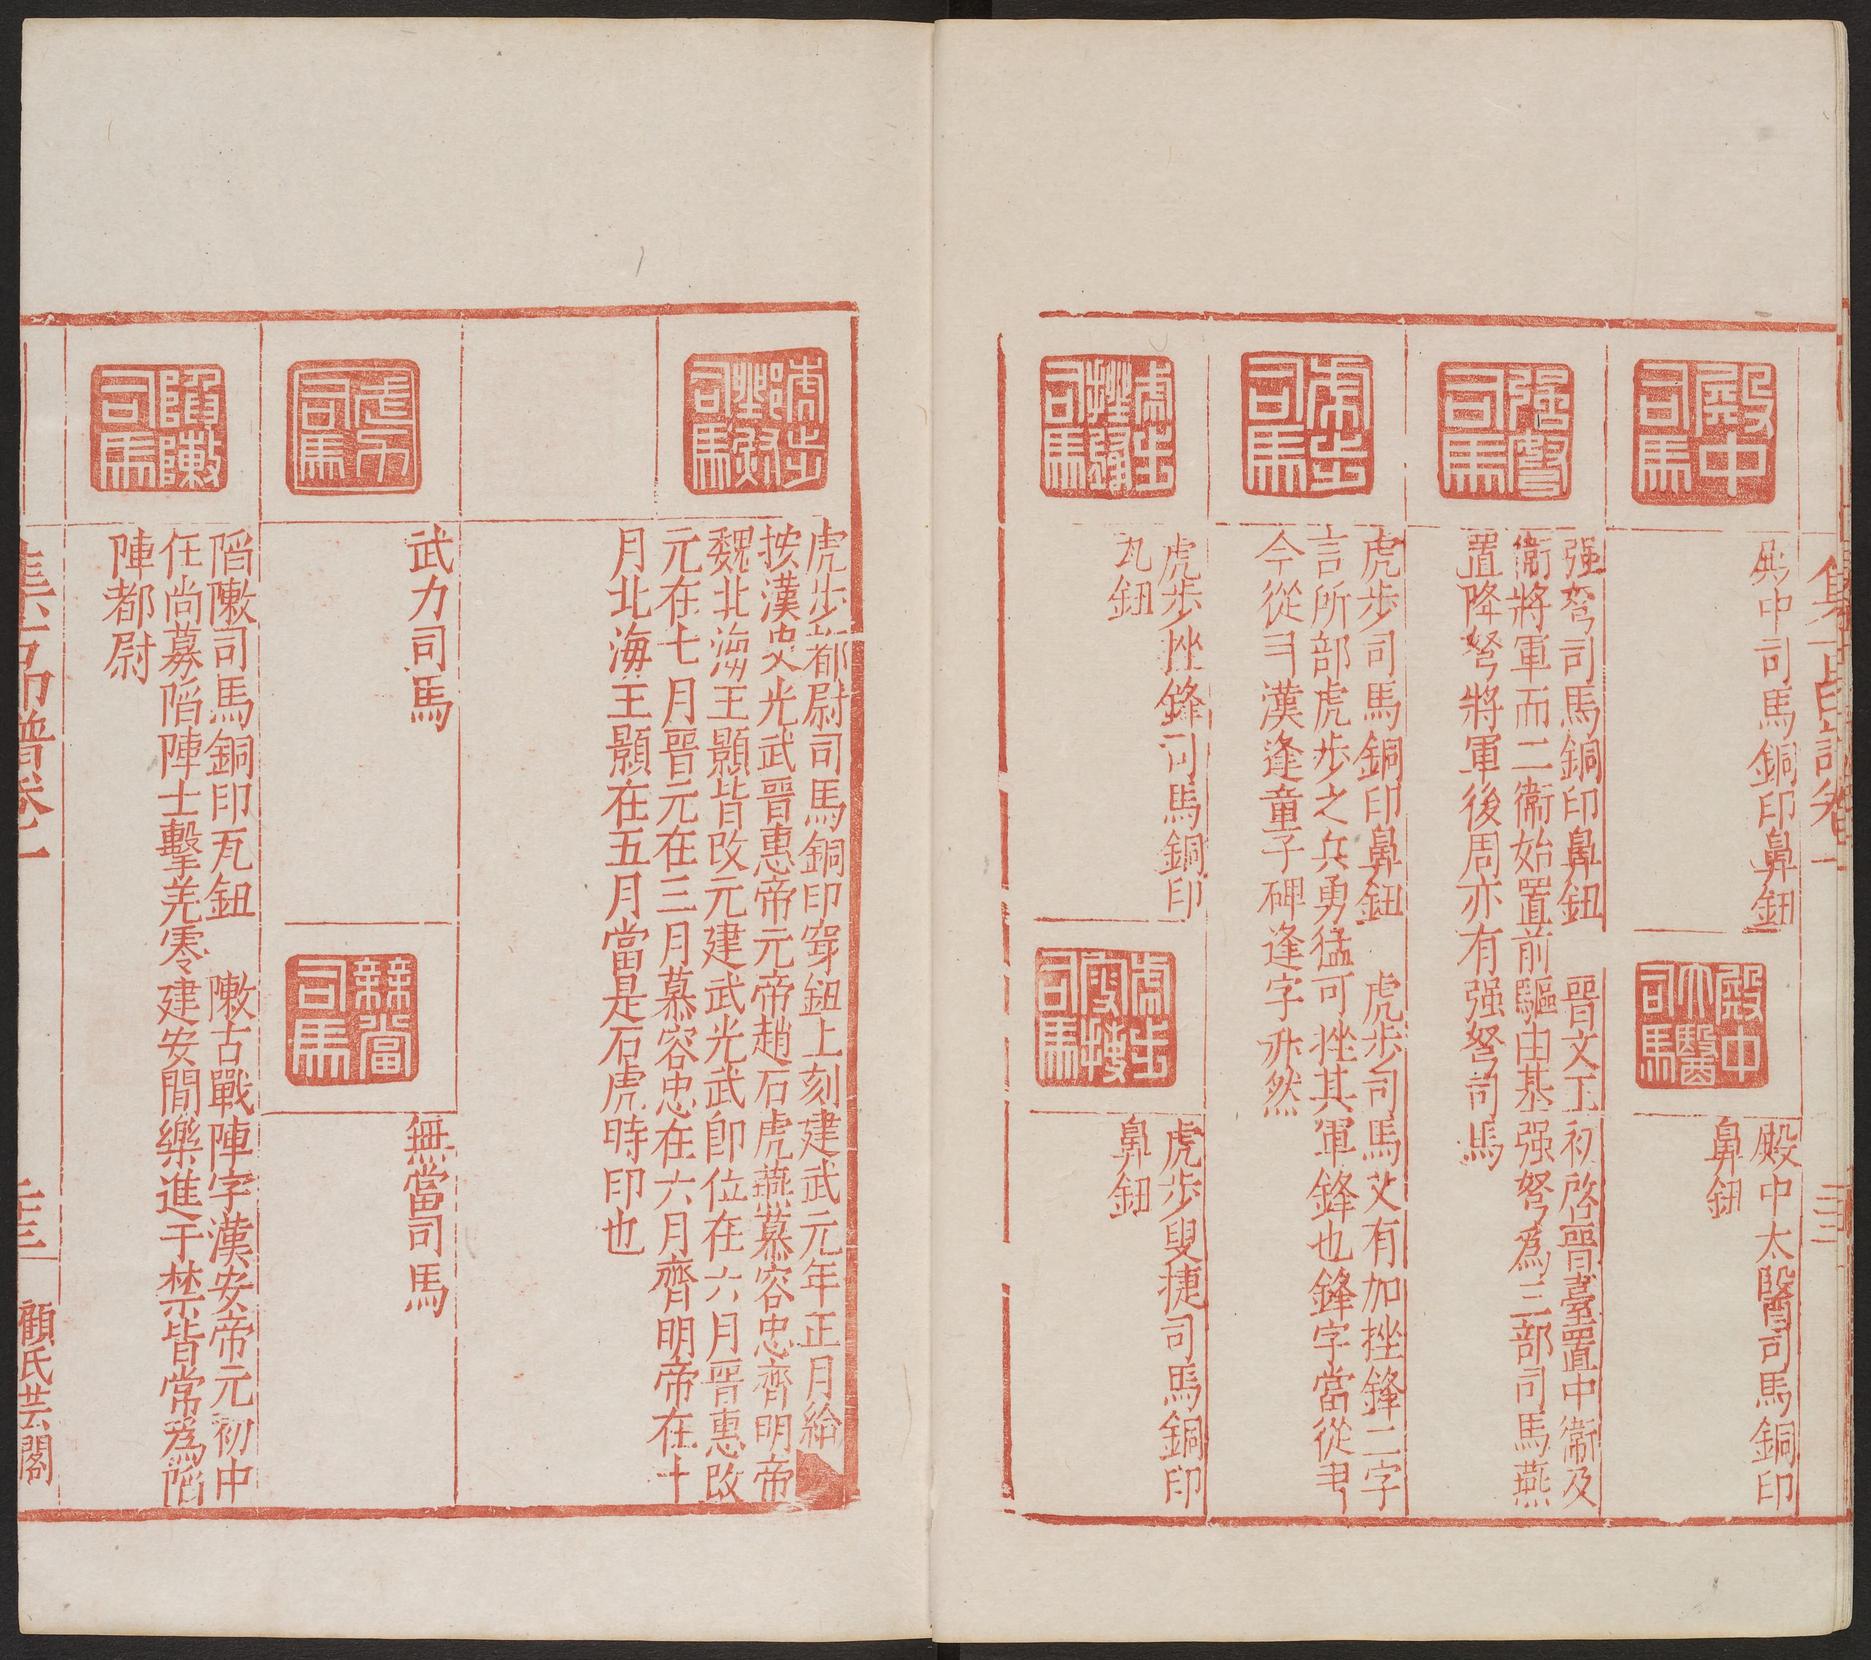 殿中司馬
殿中司馬銅印鼻鈕
殿中太醫司馬
殿中太醫司馬銅印
鼻鈕
强弩司馬
强弩司馬銅印鼻鈕 晉文王初啓晉臺置中衞及
衞將軍而二衞始置前驅由基强弩為三部司馬燕
置降弩將軍後周亦有强弩司馬
虎步司馬
虎步司馬銅印鼻鈕 虎步司馬文有加挫鋒二字
言所部虎步之兵勇猛可挫其軍鋒也鋒字當從
今從 漢逢童子碑逢字亦然
虎步挫鋒司馬
虎步挫鋒司馬銅印
瓦鈕
虎步叟捜司馬
虎步叟捷司馬銅印
鼻鈕
虎步司馬
虎步都尉司馬銅印穿鈕上刻建武元年正月給
按漢史光武晉惠帝元帝趙石虎燕慕容忠齊明帝
魏北海王顥皆改元建武光武卽位在六月晉惠改
元在七月晉元在三月慕容忠在六月齊明帝在十
月北海王顥在五月當是石虎時印也
武力司馬
武力司馬
無當司馬
無當司馬
陷陳司馬
陷陳司馬銅印瓦鈕 陳古戰陣字漢安帝元初中
任尚募陷陣士擊羌零建安間樂進于禁皆常為陷
陣都尉
集古印譜卷一
顧氏芸閣